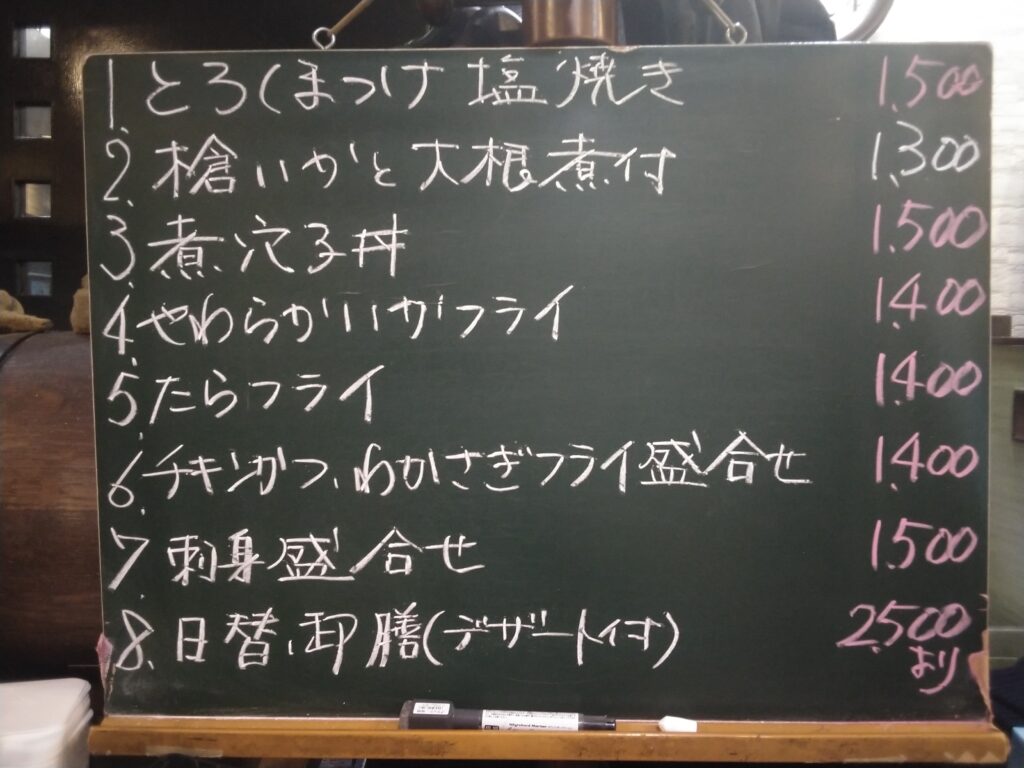 1. とろほっけ 塩焼き 1,500
2. 槍いかと大根煮付 1,300
3. 煮穴子丼 1,500
4. やわらかいかフライ 1,400
5. たらフライ 1,400
6. チキンかつ、わかさぎフライ盛合せ 1,400
7. 刺身盛合せ 1,500
8. 日替り御膳(デザート付) 2,500より